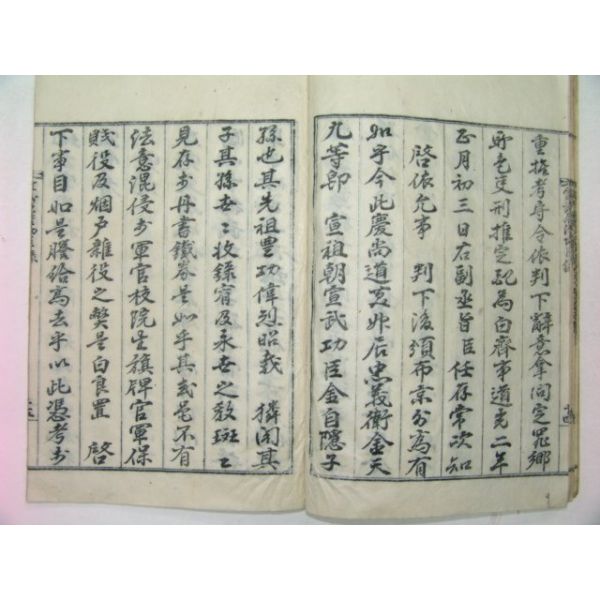 重擔考辱令依判下辭意拿問定罪鄕
所色吏刑推定配爲白齊事道光二年
正月初三日右副丞旨臣任存常次知
啓依允事 判下後須布京外爲有
如乎今此慶尙道 居忠義衛金天
九等卽 宣祖朝宣武功臣金自隱子
孫也其先祖豊功偉烈昭載 璘閣其
子其孫世〻收錄宥及永世之敎班〻
見存於丹書鐵券是如乎其或是不有
法意混侵於軍官校院生旗牌官軍保
賤役及烟戶雜役之弊是白良置 啓
下事目如是謄給爲去乎以此憑考於